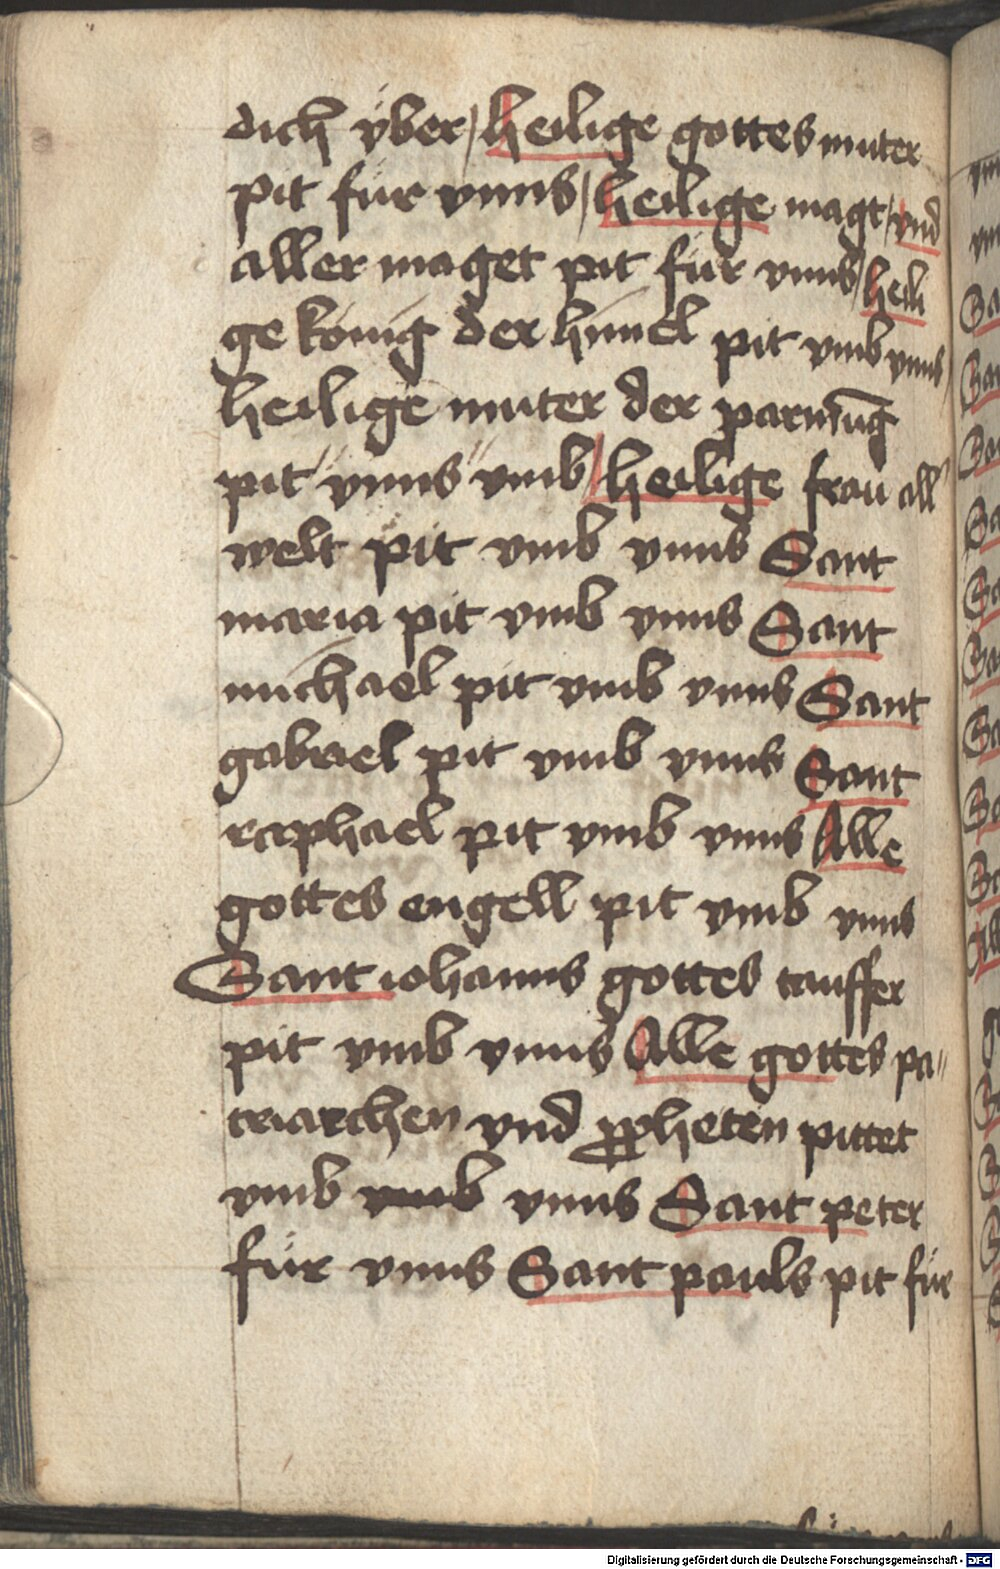 dich ÿber / heilige gottes muter
pit für vnns / heilige magt / vnd
aller maget pit für vnns / heili
ge konig der himel pit vmb vnns
heilige muter der parmūg
pit " vnns " vmb / heilige frau all
welt pit vmb vnns Sant
maria pit vmb vnns Sant
michael pit vmb vnns Sant
gabriel pit vmb vnns Sant
raphael pit vmb vnns Alle
gottes engell pit vmb vnns
Sant iohanns gottes tauffer
pit vmb vnns Alle gottes pa"
triarchen vnd ꝓpheten pittet
vmb vmb vnns Sant peter
für vnns Sant pauls pit für
Digitalisierung gefördert durch die Deutsche Forschungsgemeinschaft - DFG